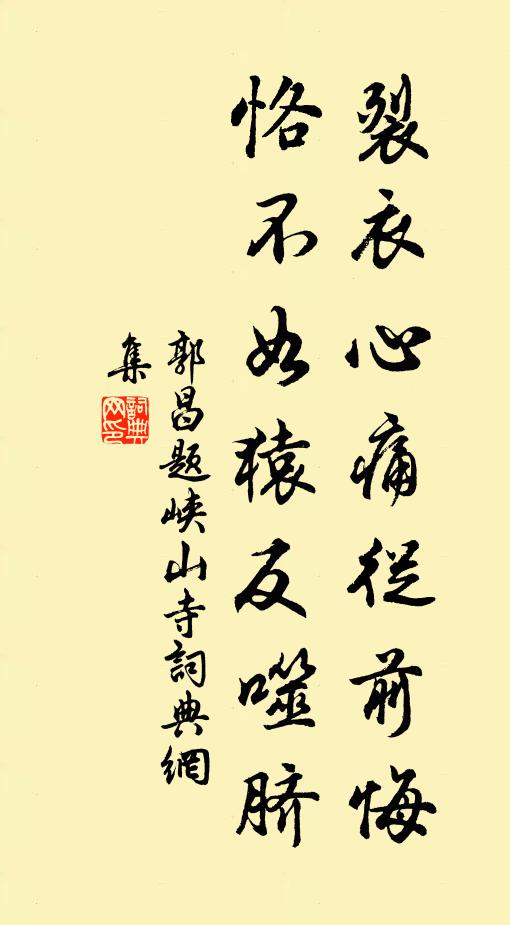 裂衣心痛從前悔
恪不如猿反噬脐
郭昌题峡山寺詞典網
集
詞典网印